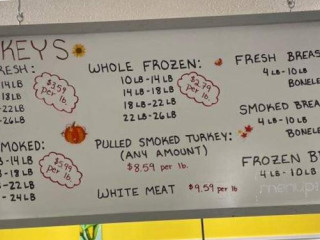 KEYS
RESH:
14LB
18LB
22LB
26LB
$3.59
per lb.
MOKED:
- 14LB
- 18LB
- 22LB
- 24LB
$5.99
per lb.
WHOLE FROZEN:
10 LB - 14 LB
14 LB - 18 LB
18 LB - 22 LB
22 LB - 26 LB
$2.99
per lb.
PULLED SMOKED TURKEY:
(ANY AMOUNT)
$8.59 per lb.
WHITE MEAT $9.59 per lb.
FRESH BREAS
4 LB - 10 LB
BONELE
SMOKED BREA
4 LB - 10 LB
BONEL
FROZEN B
4 LB - 10 L